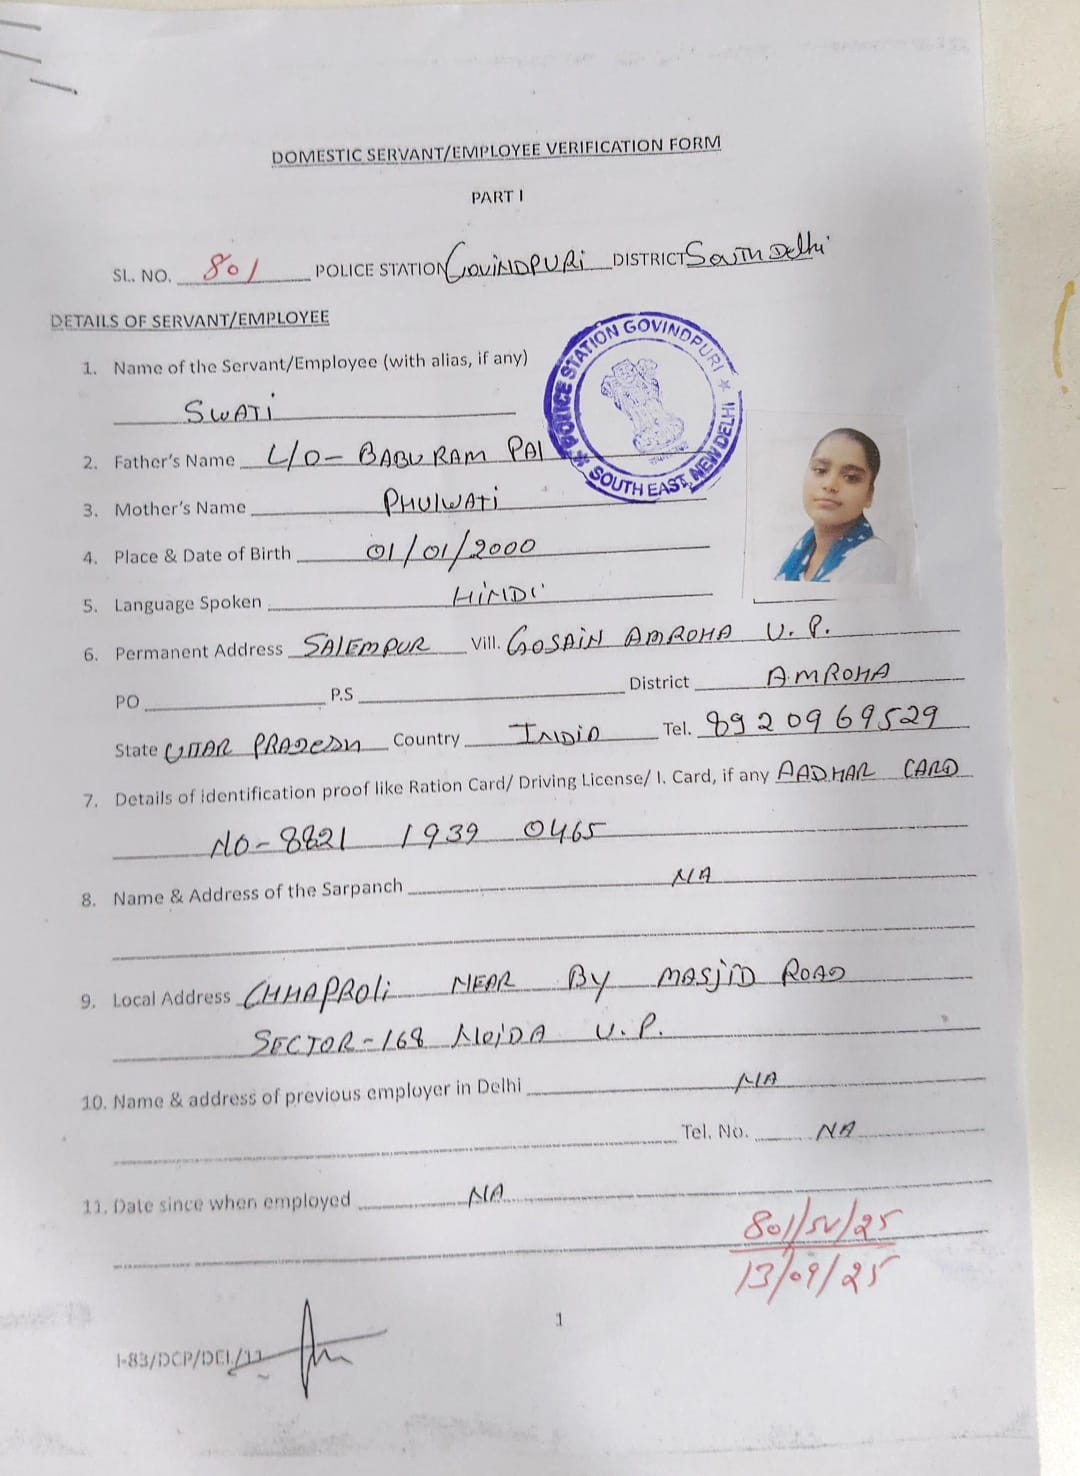 DOMESTIC SERVANT/EMPLOYEE VERIFICATION FORM
PART I
SL. NO. 801 POLICE STATION GOVINDPURI DISTRICT SOUTH Delhi
DETAILS OF SERVANT/EMPLOYEE
1. Name of the Servant/Employee (with alias, if any)
SWATI
POLICE STATION GOVINDPURI ★ SOUTH EAST, NEW DELHI ★
2. Father's Name L/O- BABU RAM PAl
3. Mother's Name PHULWATI
4. Place & Date of Birth 01/01/2000
5. Language Spoken HINDI
6. Permanent Address SALEMPUR Vill. GOSAIN AMROHA U.P.
PO P.S District AMROHA
State UTTAR PRADESH Country INDIA Tel. 8920969529
7. Details of identification proof like Ration Card/ Driving License/ I. Card, if any AADHAR CARD
NO-8821 1939 0465
8. Name & Address of the Sarpanch NA
9. Local Address CHHAPROLI NEAR BY MASJID ROAD
SECTOR-168 NOIDA U.P.
10. Name & address of previous employer in Delhi NA
Tel. No. NA
11. Date since when employed NA
801/SV/25
13/09/25
1
I-83/DCP/DEL/11